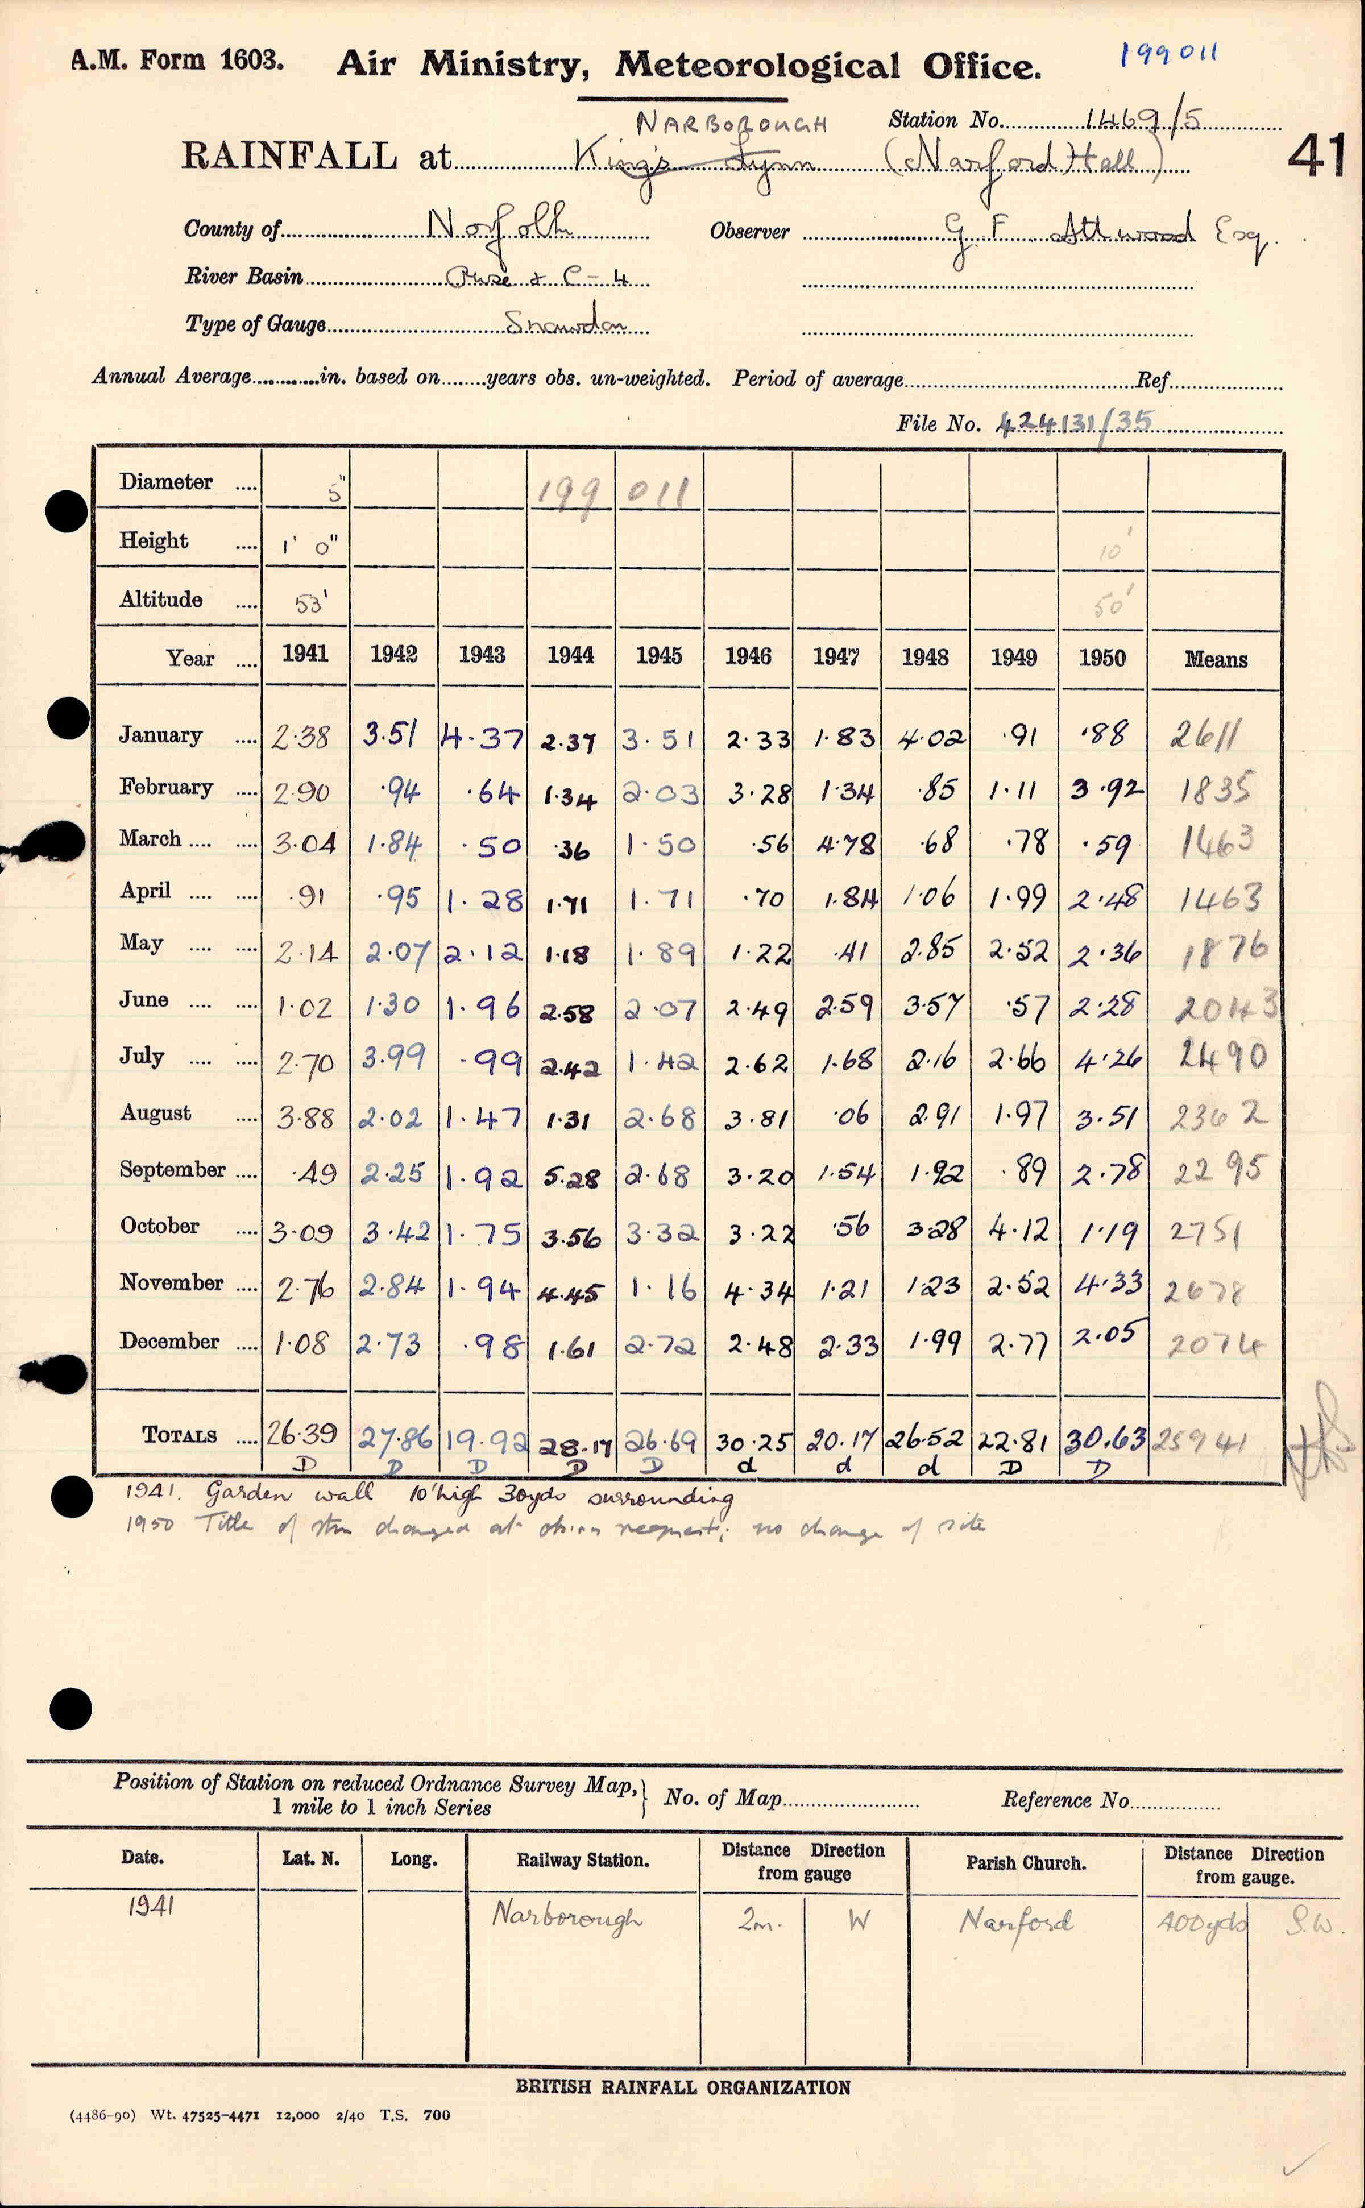 199011
A.M. Form 1603. Air Ministry, Meteorological Office.
NARBOROUGH Station No. 1469/5
RAINFALL at King's Lynn (Narford Hall) 41
County of Norfolk Observer G F Attwood Esq.
River Basin Ouse & C - 4
Type of Gauge Snowdon
Annual Average in. based on years obs. un-weighted. Period of average Ref
File No. 424131/35
Diameter 5" 199 011
Height 1' 0" 10'
Altitude 53' 50'
Year 1941 1942 1943 1944 1945 1946 1947 1948 1949 1950 Means
January 2.38 3.51 4.37 2.37 3.51 2.33 1.83 4.02 .91 .88 2611
February 2.90 .94 .64 1.34 2.03 3.28 1.34 .85 1.11 3.92 1835
March 3.04 1.84 .50 .36 1.50 .56 4.78 .68 .78 .59 1463
April .91 .95 1.28 1.71 1.71 .70 1.84 1.06 1.99 2.48 1463
May 2.14 2.07 2.12 1.18 1.89 1.22 .41 2.85 2.52 2.36 1876
June 1.02 1.30 1.96 2.58 2.07 2.49 2.59 3.57 .57 2.28 2043
July 2.70 3.99 .99 2.42 1.42 2.62 1.68 2.16 2.66 4.26 2490
August 3.88 2.02 1.47 1.31 2.68 3.81 .06 2.91 1.97 3.51 2362
September .49 2.25 1.92 5.28 2.68 3.20 1.54 1.92 .89 2.78 2295
October 3.09 3.42 1.75 3.56 3.32 3.22 .56 3.28 4.12 1.19 2751
November 2.76 2.84 1.94 4.45 1.16 4.34 1.21 1.23 2.52 4.33 2678
December 1.08 2.73 .98 1.61 2.72 2.48 2.33 1.99 2.77 2.05 2074
TOTALS 26.39 27.86 19.92 28.17 26.69 30.25 20.17 26.52 22.81 30.63 25941
D D D D D d d d D D
1941. Garden wall 10' high 30yds surrounding
1950 Title of stn changed at obs.rs request; no change of site
Position of Station on reduced Ordnance Survey Map, } No. of Map Reference No.
1 mile to 1 inch Series
Date. Lat. N. Long. Railway Station. Distance Direction from gauge Parish Church. Distance Direction from gauge.
1941 Narborough 2m. W Narford 400yds S.W.
BRITISH RAINFALL ORGANIZATION
(4486-90) Wt. 47525-4471 12,000 2/40 T.S. 700